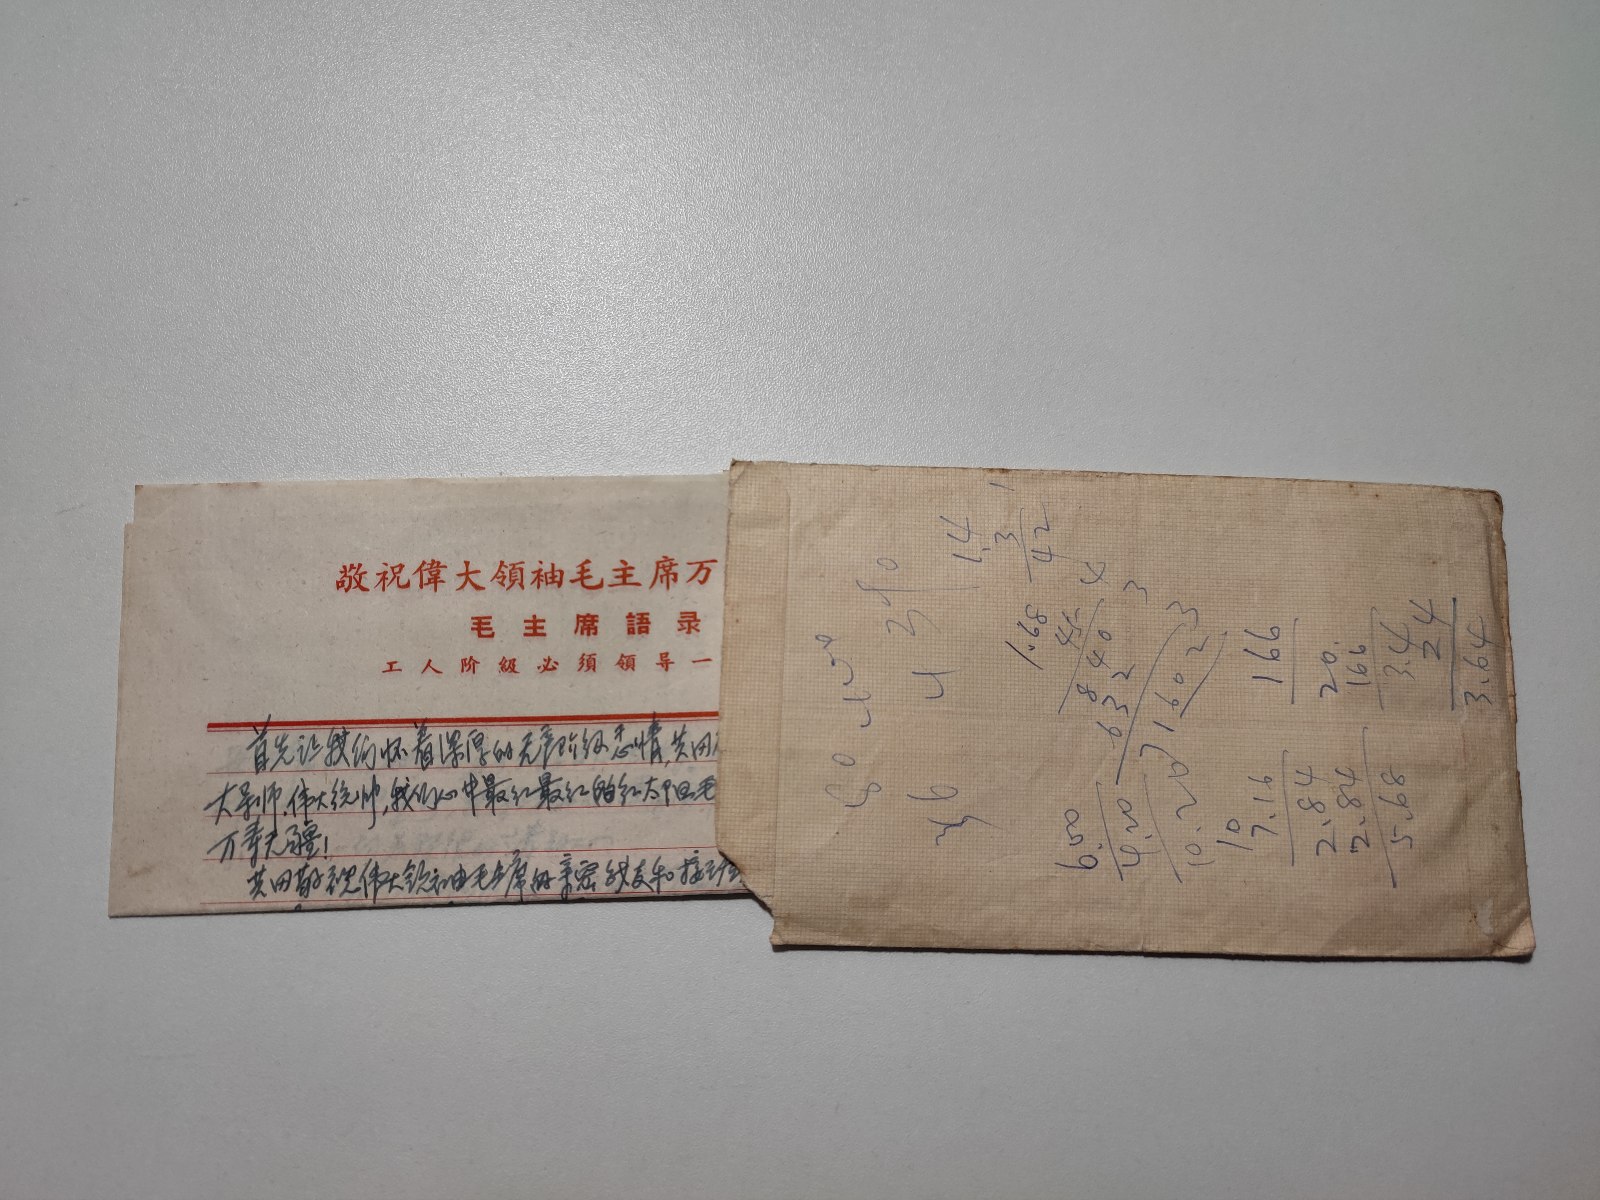 敬祝偉大領袖毛主席万
毛主席語录
工人阶級必須領导一
首先让我们怀着深厚的无产阶级感情,共同
大导师.伟大统帅,我们心中最红最红的红太阳毛
万寿无疆!
共同敬祝伟大领袖毛主席的亲密战友和接班
1.4
3
42
1.68
45
840
632
4
3
3
1602
6.00
4.20
10.20
166
10
7.16
2.84
2.84
5.68
20.
166
3.4
24
3.64